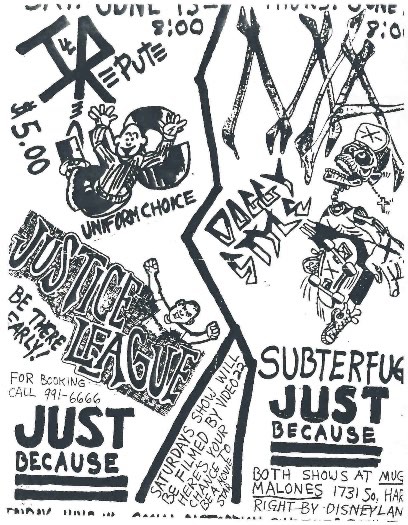 SAT. JUNE 13
8:00
ILL REPUTE
$5.00
UNIFORM CHOICE
JUSTICE
LEAGUE
BE THERE
EARLY!
FOR BOOKING
CALL 991-6666
JUST
BECAUSE
SATURDAYS SHOW WILL
BE FILMED BY VIDEO 22
HERE'S YOUR
CHANCE TO
BE A
8:0
DOGGY
STYLE
SUBTERFUG
JUST
BECAUSE
BOTH SHOWS AT MUG
MALONES 1731 SO. HAR
RIGHT BY DISNEYLAN